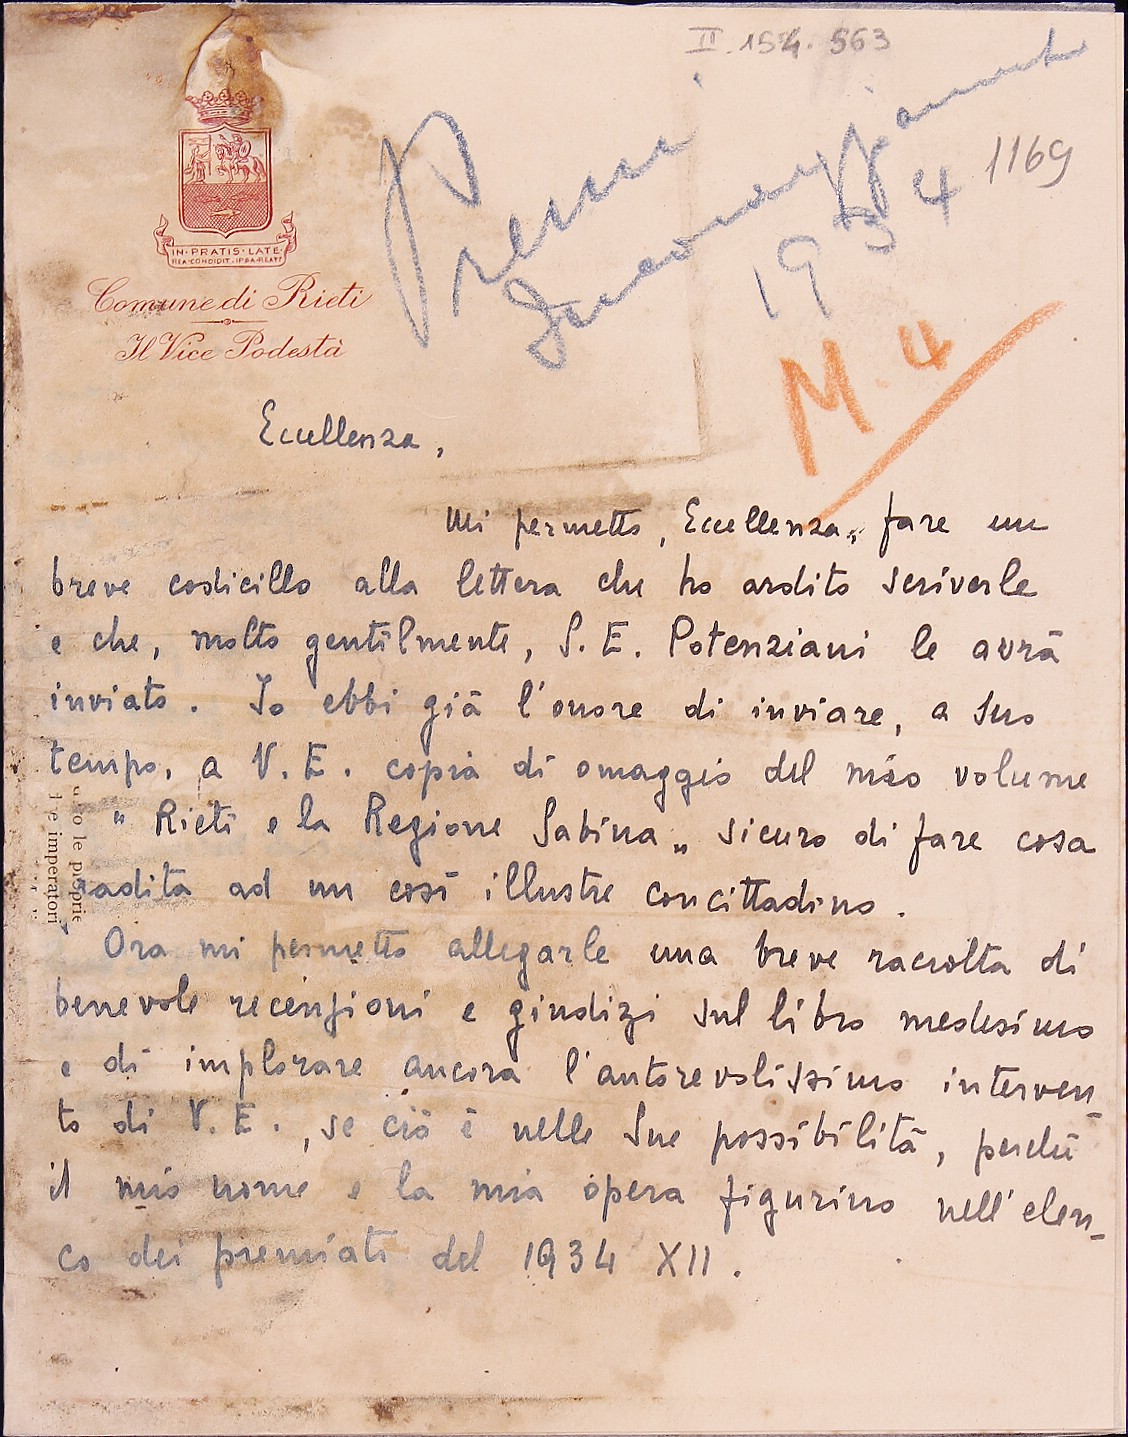 II. 154. 563
Premi
Incoraggiamento
1934
1169
M. 4
IN·PRATIS·LATE
REA·CONDIDIT·IPSA·REATE
Comune di Rieti
Il Vice Podestà
Eccellenza,
Mi permetto, Eccellenza, fare un
breve codicillo alla lettera che ho ardito scriverle
e che, molto gentilmente, S. E. Potenziani le avrà
inviato. Io ebbi già l'onore di inviare, a suo
tempo, a V. E. copia di omaggio del mio volume
" Rieti e la Regione Sabina „ sicuro di fare cosa
radita ad un così illustre concittadino.
Ora mi permetto allegarle una breve raccolta di
benevole recensioni e giudizi sul libro medesimo
e di implorare ancora l'autorevolissimo interven-
to di V. E., se ciò è nelle Sue possibilità, perchè
il mio nome e la mia opera figurino nell'elen-
co dei premiati del 1934 XII.
ro le proprie
e imperatori